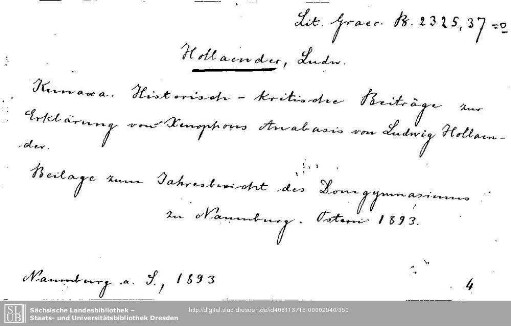 Lit. Graec. B. 2325, 37
Hollaender, Ludw.
Kunaxa. Historisch-kritische Beiträge zur
Erklärung von Xenophons Anabasis von Ludwig Hollaen-
der.
Beilage zum Jahresbericht des Domgymnasiums
zu Naumburg. Ostern 1893.
Naumburg a. S., 1893
4
SLUB
Sächsische Landesbibliothek –
Staats- und Universitätsbibliothek Dresden